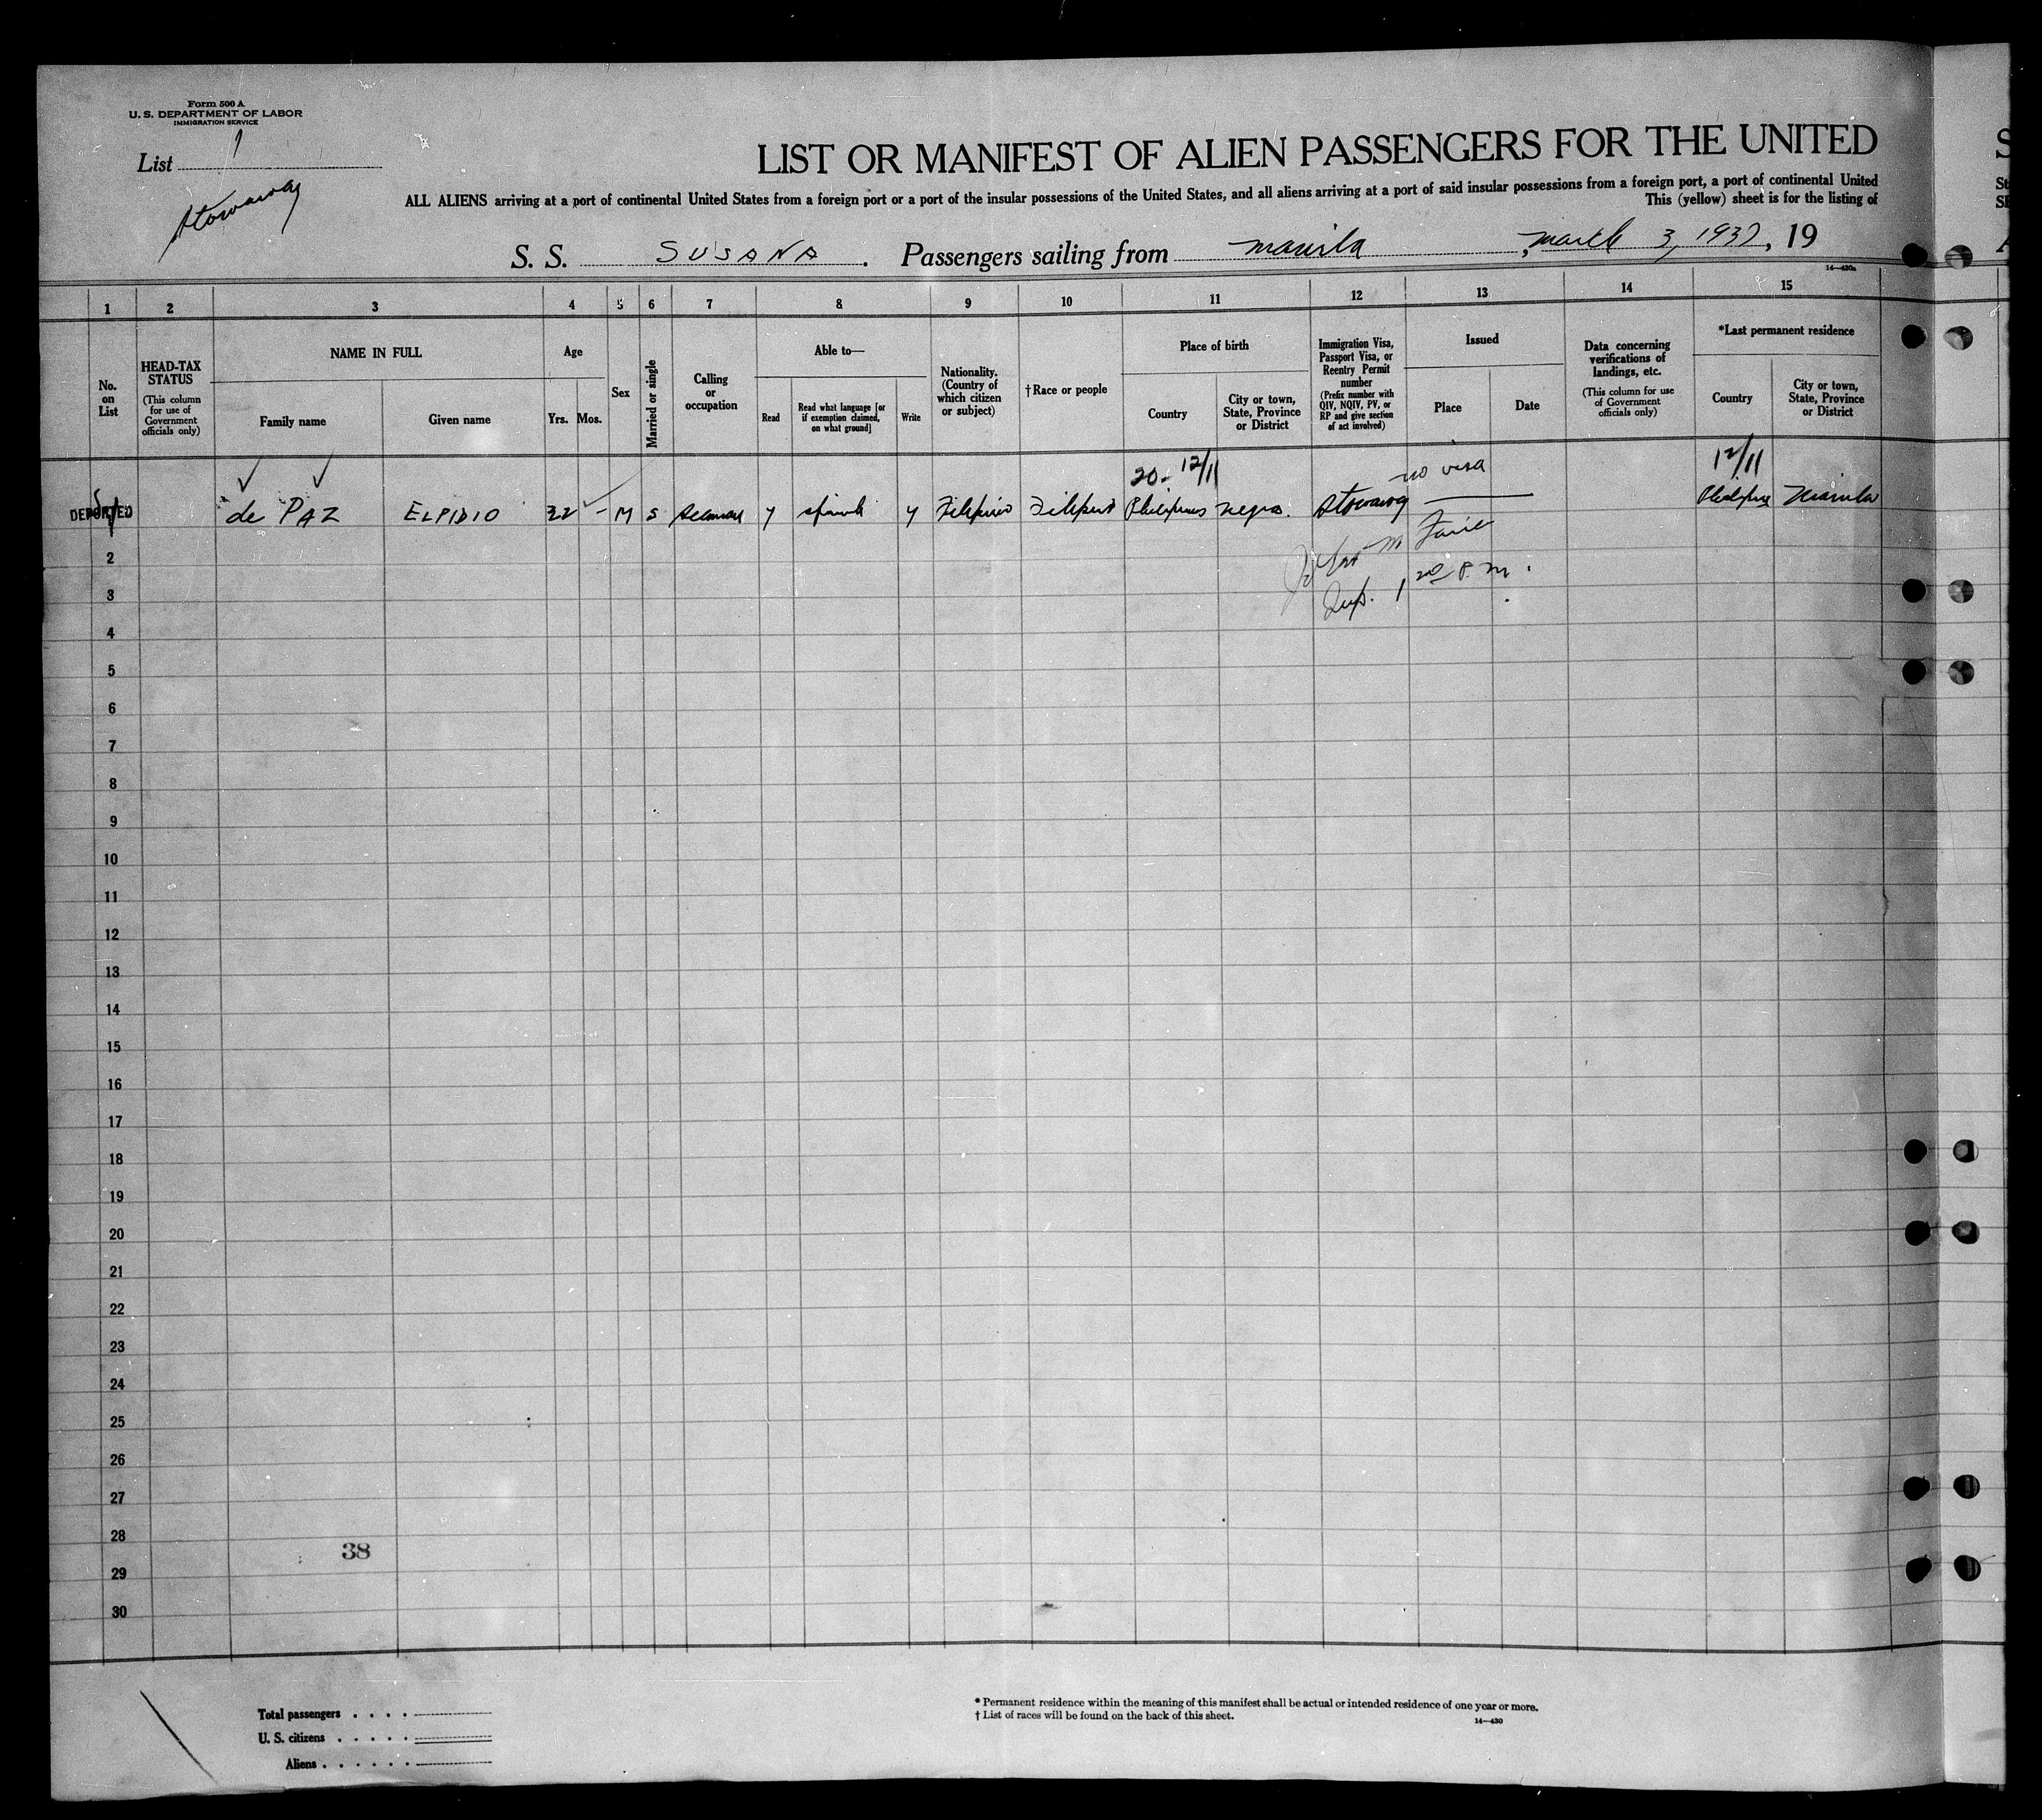 Form 500 A
U. S. DEPARTMENT OF LABOR
IMMIGRATION SERVICE
List 1
Stowaway
LIST OR MANIFEST OF ALIEN PASSENGERS FOR THE UNITED
ALL ALIENS arriving at a port of continental United States from a foreign port or a port of the insular possessions of the United States, and all aliens arriving at a port of said insular possessions from a foreign port, a port of continental United
This (yellow) sheet is for the listing of
S. S. SUSANA. Passengers sailing from Manila, March 3, 1937, 19
14—430a
1 2 3 4 5 6 7 8 9 10 11 12 13 14 15
No. on List
HEAD-TAX STATUS (This column for use of Government officials only)
NAME IN FULL
Family name
Given name
Age
Yrs. Mos.
Sex
Married or single
Calling or occupation
Able to—
Read
Read what language [or if exemption claimed, on what ground]
Write
Nationality. (Country of which citizen or subject)
†Race or people
Place of birth
Country
City or town, State, Province or District
Immigration Visa, Passport Visa, or Reentry Permit number (Prefix number with QIV, NQIV, PV, or RP and give section of act involved)
Issued
Place
Date
Data concerning verifications of landings, etc. (This column for use of Government officials only)
*Last permanent residence
Country
City or town, State, Province or District
20- 12/11 no visa 12/11
DEPORTED 1 de PAZ ELPIDIO 22 - M S Seaman y Spanish y Filipino Filipino Philippines Negros. Stowaway Philippines Manila
2
3
4
5
6
7
8
9
10
11
12
13
14
15
16
17
18
19
20
21
22
23
24
25
26
27
28
38
29
30
Total passengers
U. S. citizens
Aliens
* Permanent residence within the meaning of this manifest shall be actual or intended residence of one year or more.
† List of races will be found on the back of this sheet.
14—430